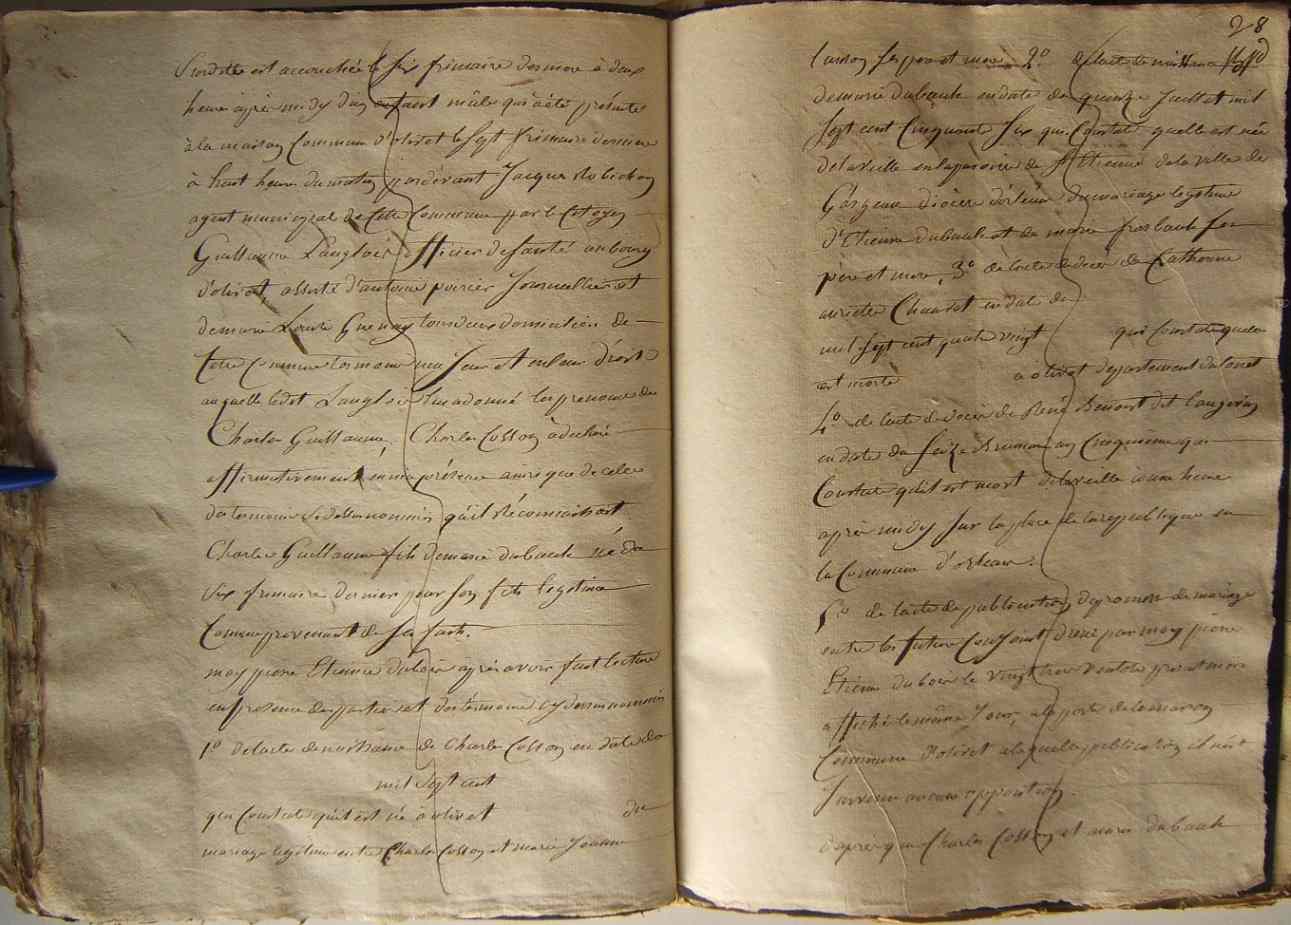 est accouchée le six frimaire dernier à deux
heure après midy d'un enfant mâle qui a été présenté
à la maison Commune d'olivet le sept frimaire dernier
à huit heure du matin pardevant Jacque
agent municipal de Cette Commune par le Citoyen
Guillaume Langlois officier de santé au bourg
d'olivet assisté d'antoine poirier Journallier et
de marie Louise tous deux domiciliés de
Cette Commune
auquelle ledit Langlois a donné les prenoms de
Charles Guillaume Charles Cosson a déclaré
affirmativement en ma présence ainsi que de celle
des témoins cydessus nommés qu'il reconnaissait
Charles Guillaume fils de marie dubault né le
six frimaire dernier pour son fils legitime
Comme provenant de ses faits.
moy pierre Etienne dubois après avoir fait lecture
en presence des parties et des témoins cy dessus nommés
1º de l'acte de naissance de Charles Cosson en date du
mil sept cent
qui Constate qu'il est né à olivet du
mariage legitime entre Charles Cosson et marie Jeanne
28
ses pere et mere 2º de l'acte de naissance
de marie dubault en date du quinze Juillet mil
sept cent Cinquante six qui Constate quelle est née
de la veille en la paroisse de St Etienne de la ville de
Gergeau diocèse d'orléans du mariage legitime
d'Etienne dubault et de marie ses
pere et mere, 3º de l'acte de deces de Catherine
en date du
mil sept cent quatre vingt qui Constate quelle
est morte a olivet departement du Loiret
4º de l'acte de deces de René Benoist dit
en date du seize Brumaire an Cinquieme qui
Constate qu'il est mort de la veille à une heure
après midy sur la place de la republique en
la Commune d'orleans.
5º de l'acte de publication de promesse de mariage
entre les futurs Conjoints dressé par moy pierre
Etienne dubois le vingt trois ventose present mois
affiché le même Jour, a la porte de la maison
Commune d'olivet a laquelle publication il n'est
survenu aucune opposition.
d'après que Charles Cosson et marie dubault